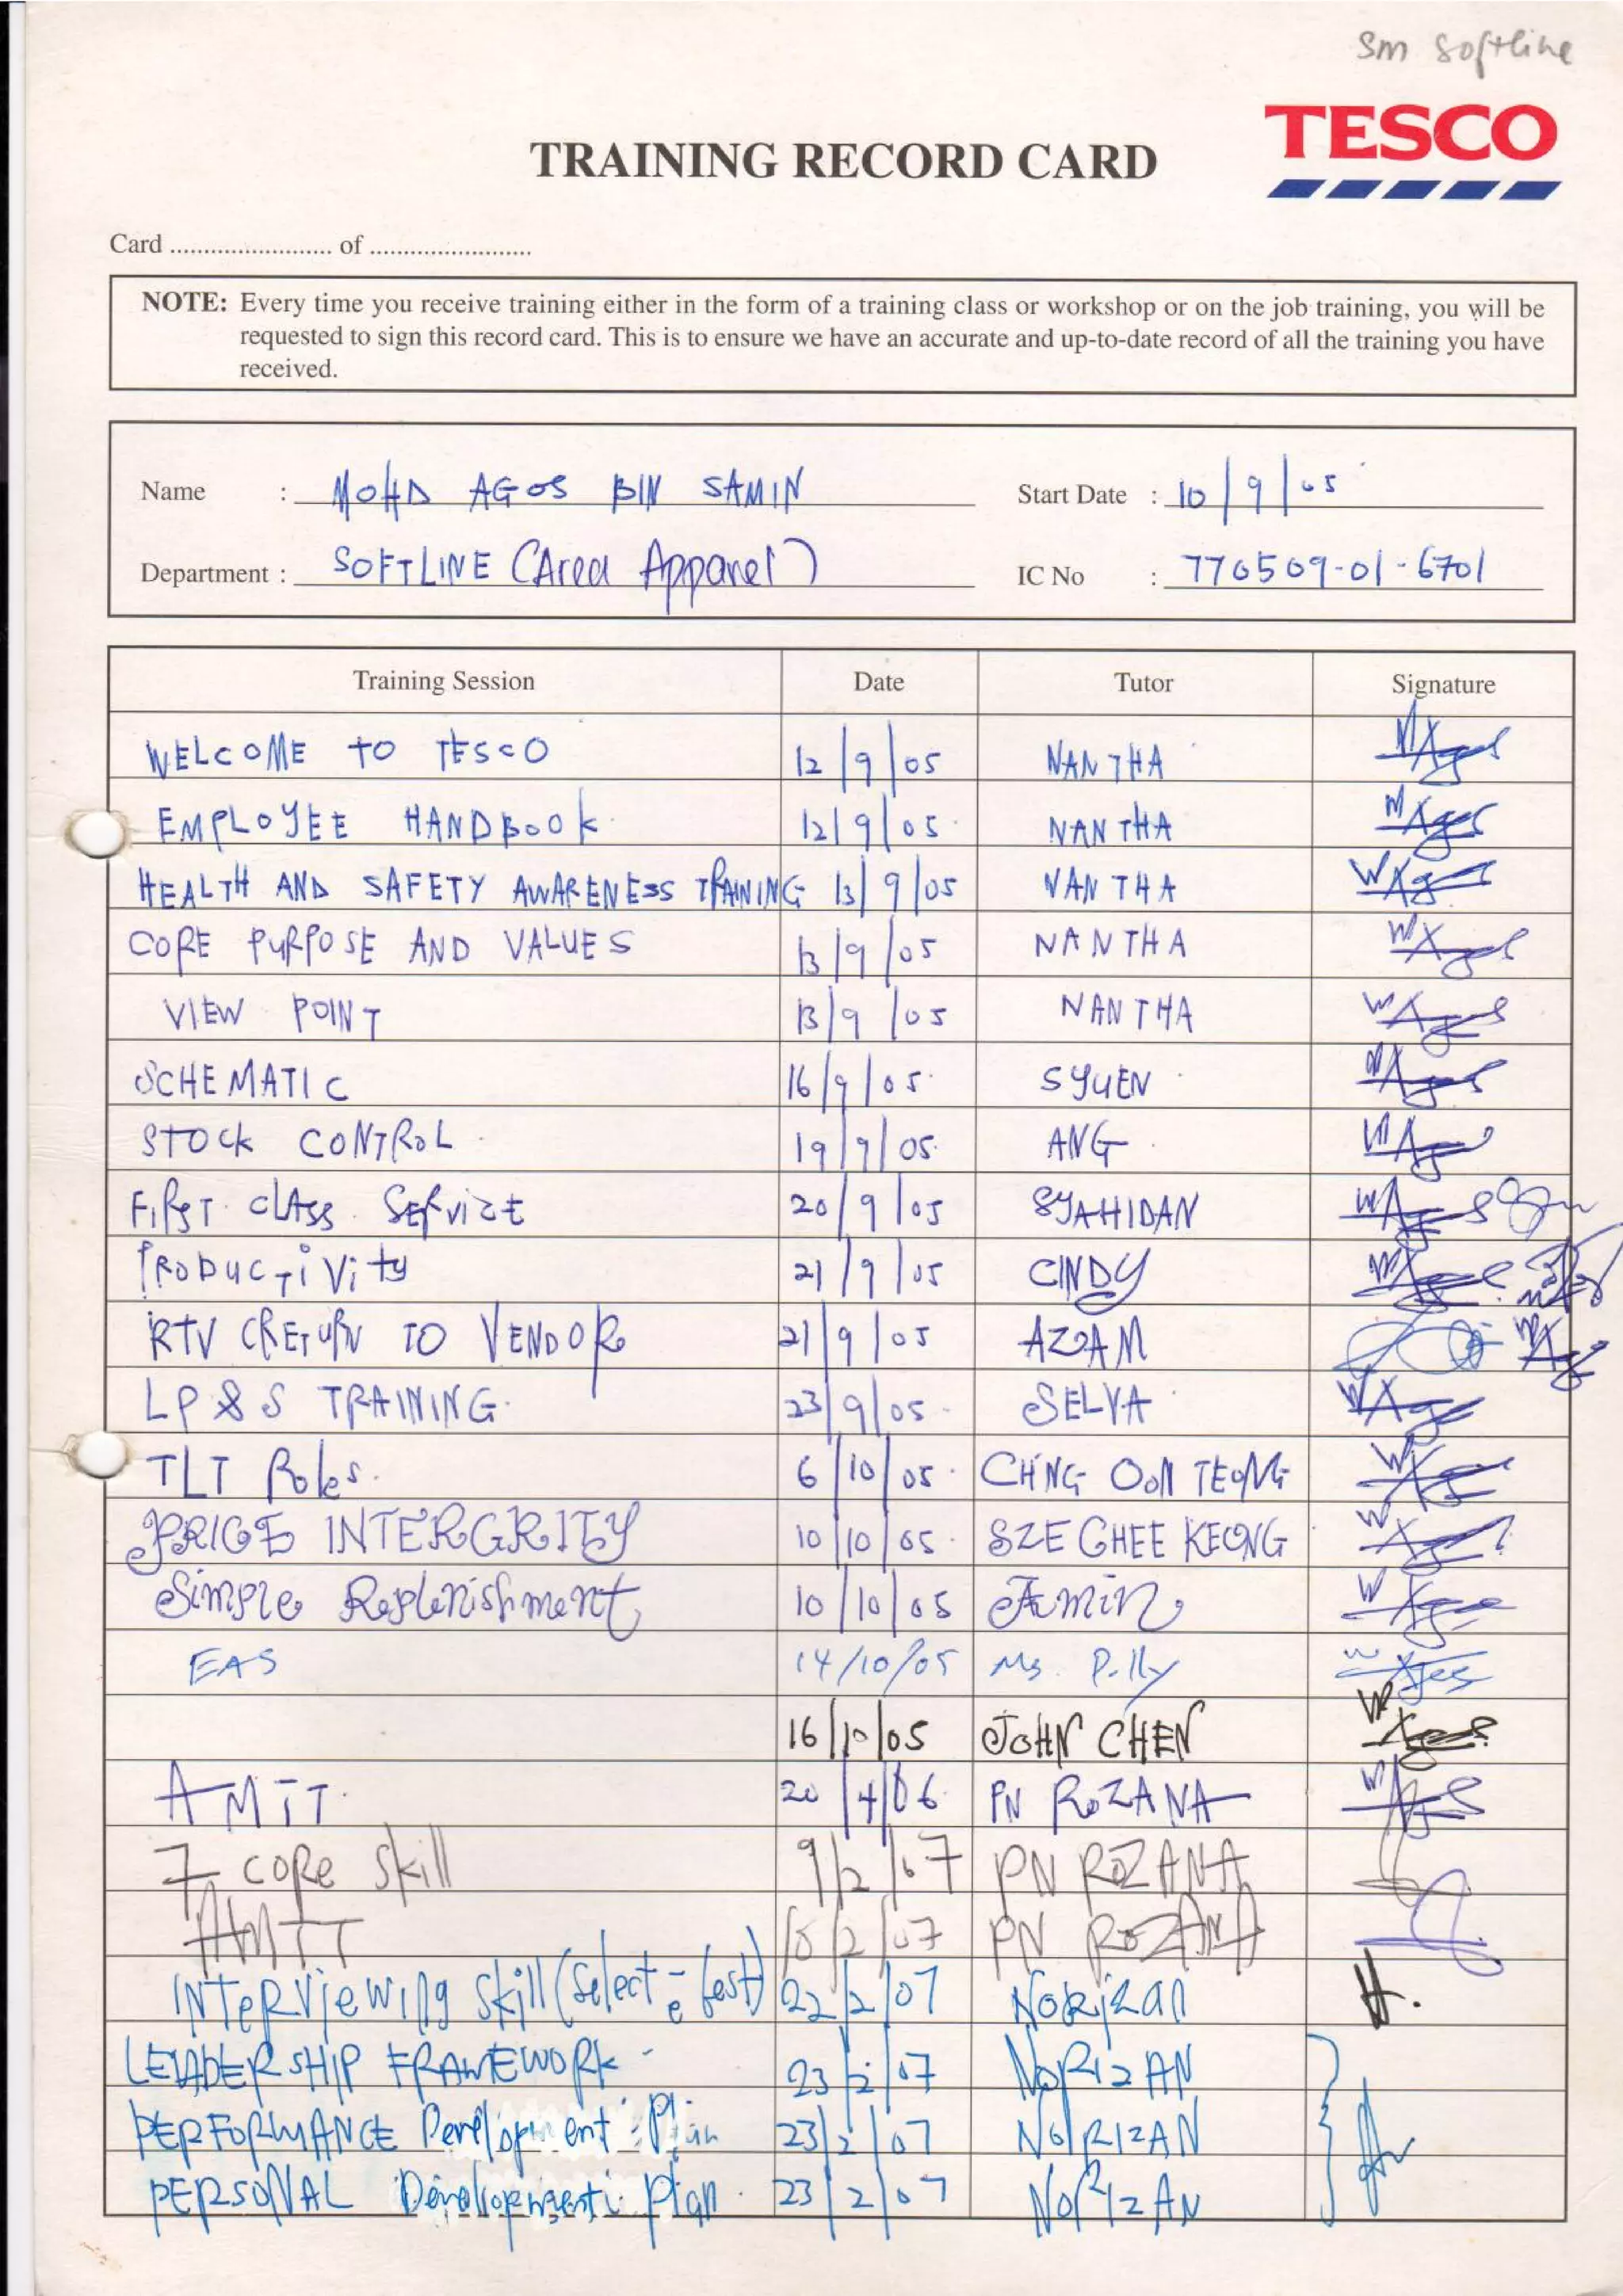 Sm Softline
TESCO
TRAINING RECORD CARD
Card ........................ of ........................
NOTE: Every time you receive training either in the form of a training class or workshop or on the job training, you will be
requested to sign this record card. This is to ensure we have an accurate and up-to-date record of all the training you have
received.
Name : MOHD AGOS BIN SAMIN Start Date : 10/9/05
Department : SOFTLINE (Area Apparel) IC No : 770509-01-6701
Training Session Date Tutor Signature
WELCOME TO TESCO 12/9/05 NANTHA
EMPLOYEE HANDBOOK 12/9/05 NANTHA
HEALTH AND SAFETY AWARENESS TRAINING 13/9/05 NANTHA
CORE PURPOSE AND VALUES 13/9/05 NANTHA
VIEW POINT 13/9/05 NANTHA
SCHEMATIC 16/9/05 SYUEN
STOCK CONTROL 19/9/05 ANG
FIRST CLASS SERVICE 20/9/05 SYAHIDAN
PRODUCTIVITY 21/9/05 CINDY
RTV (RETURN TO VENDOR 21/9/05 AZZAM
LP & S TRAINING. 23/9/05 SELVA
TLT Roles. 6/10/05 CH'NG OON TEONG
PRICE INTERGRITY 10/10/05 SZE GHEE KEONG
Simple Replenishment 10/10/05 Amin
EAS 14/10/05 Ms. Polly
16/10/05 JOHN CHEN
AMIT 20/4/06 PN ROZANA
7 core skill 9/2/07 PN ROZANA
AMIT /2/07 PN ROZANA
INTERVIEWING SKILL (Select e best) 22/2/07 Norizan
LEADERSHIP FRAMEWORK - 23/2/07 NORIZAN
PERFORMANCE Development Plan 23/2/07 NORIZAN
PERSONAL Development Plan. 23/2/07 NORIZAN